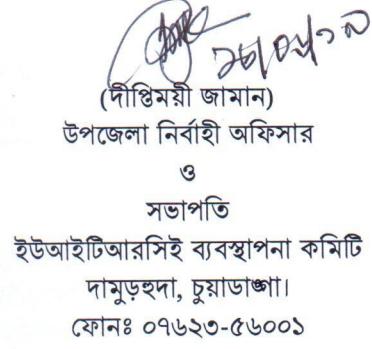 (দীপ্তিময়ী জামান)
উপজেলা নির্বাহী অফিসার
ও
সভাপতি
ইউআইটিআরসিই ব্যবস্থাপনা কমিটি
দামুড়হুদা, চুয়াডাঙ্গা।
ফোনঃ ০৭৬২৩-৫৬০০১